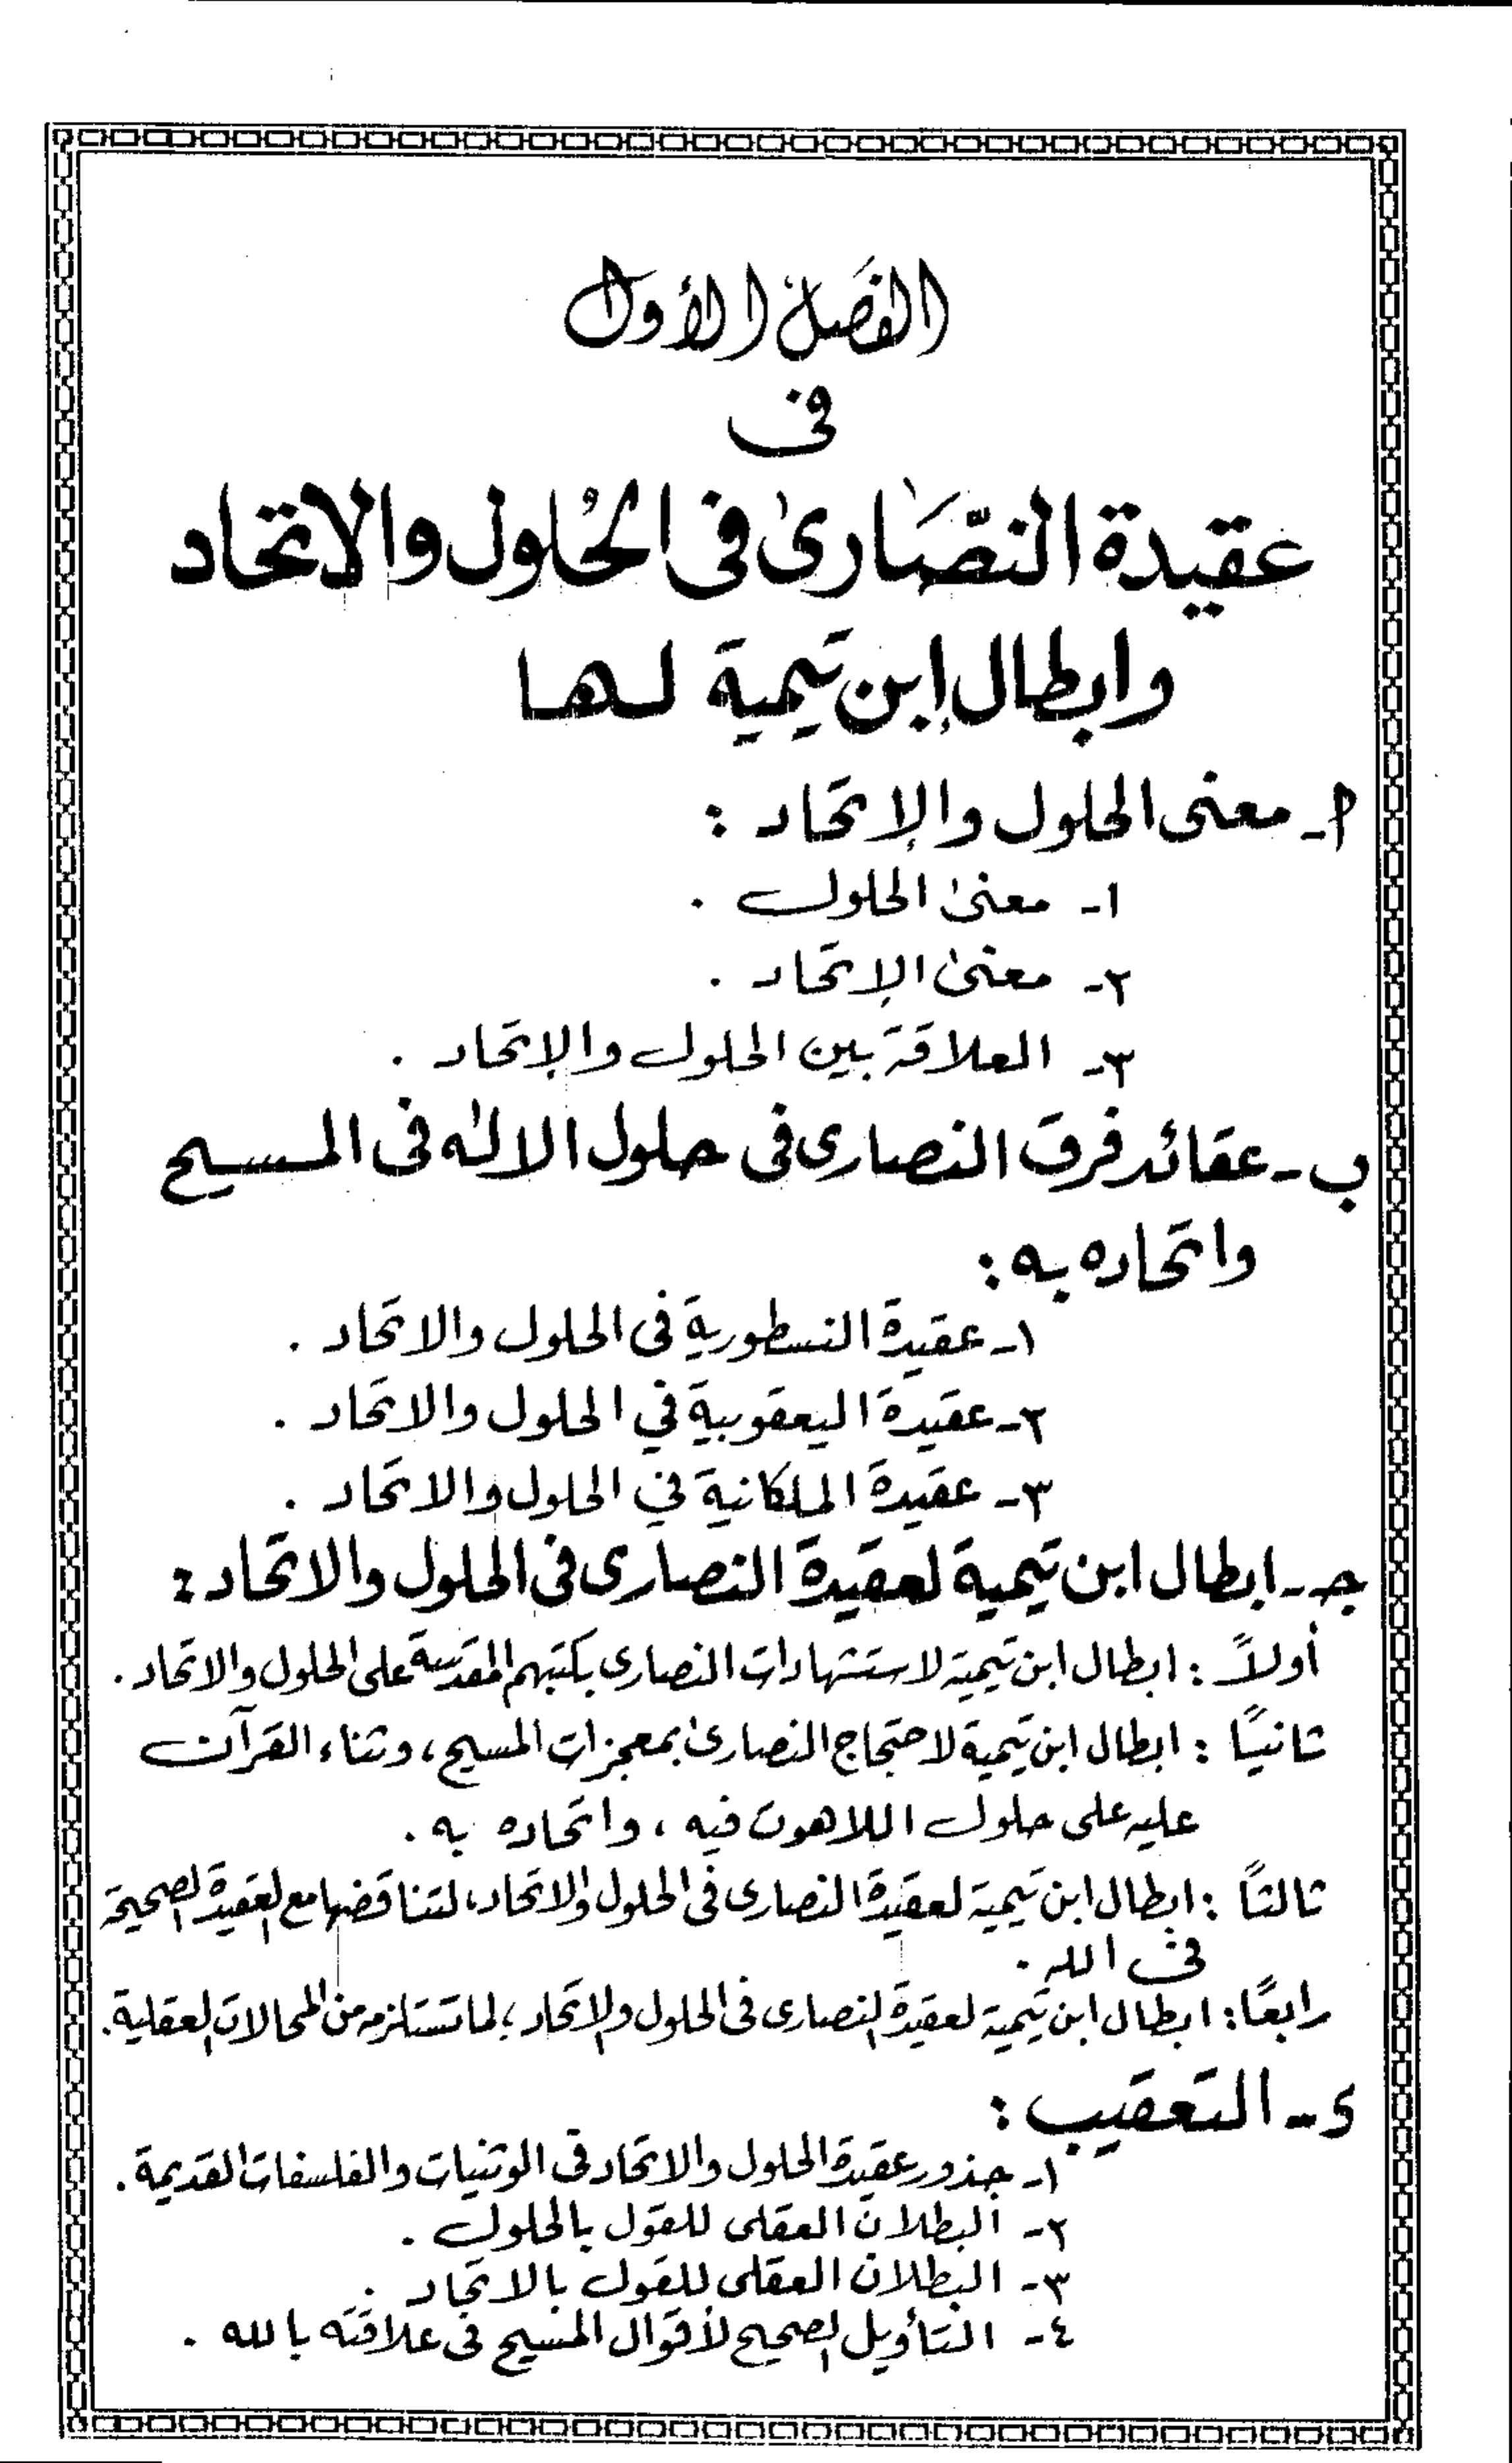 الفصل الأول
فى
عقيدة النصّارىٰ فى الحُلول والاتحاد
وابطال إبن تيمية لها
أ- معنى الحلول والإتحاد :
١- معنىٰ الحلول .
٢- معنىٰ الإتحاد .
٣- العلاقة بين الحلول والإتحاد .
ب- عقائد فرق النصارى فى حلول الالٰه فى المسيح
واتحاده به :
١- عقيدة النسطورية فى الحلول والاتحاد .
٢- عقيدة اليعقوبية في الحلول والاتحاد .
٣- عقيدة الملكانية في الحلول والاتحاد .
جـ- ابطال ابن تيمية لعقيدة النصارى فى الحلول والاتحاد :
أولاً : ابطال ابن تيمية لاستشهادات النصارى بكتبهم المقدسة على الحلول والاتحاد .
ثانيًا : ابطال ابن تيمية لاحتجاج النصارىٰ بمعجزات المسيح ، وثناء القرآن
عليه على حلول اللاهوت فيه ، واتحاده به .
ثالثاً : ابطال ابن تيمية لعقيدة النصارى فى الحلول والاتحاد، لتناقضها مع العقيدة الصحيحة
فى الله .
رابعًا : ابطال ابن تيمية لعقيدة النصارى فى الحلول والاتحاد ؛ لما تستلزمه من المحالات العقلية .
د- التعقيب :
١- جذور عقيدة الحلول والاتحاد فى الوثنيات والفلسفات القديمة .
٢- البطلان العقلى للقول بالحلول .
٣- البطلان العقلى للقول بالاتحاد .
٤- التأويل الصحيح لأقوال المسيح فى علاقته بالله .